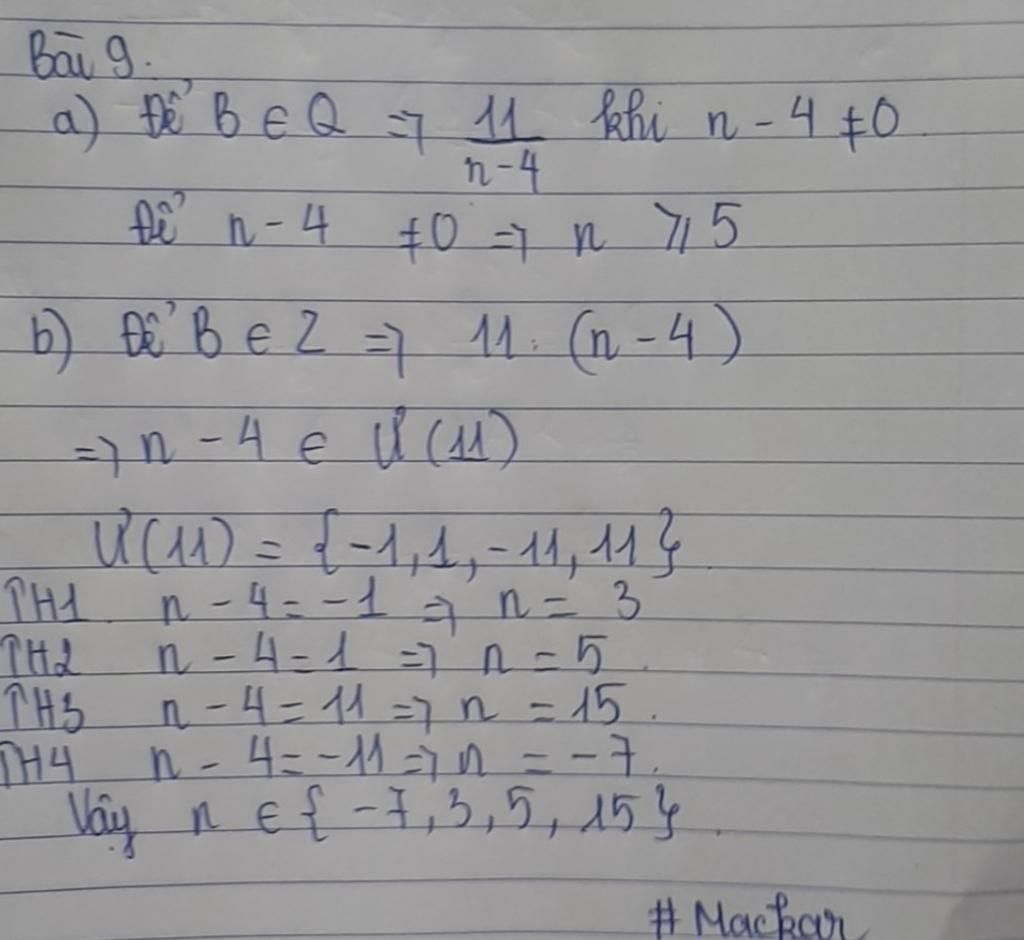 Bài 9.
a) Để B ∈ Q => 11/(n-4) khi n - 4 ≠ 0
Để n - 4 ≠ 0 => n ⩾ 5
b) Để B ∈ Z => 11 : (n - 4)
=> n - 4 ∈ Ư(11)
Ư(11) = {-1, 1, -11, 11}
TH1 n - 4 = -1 => n = 3
TH2 n - 4 = 1 => n = 5.
TH3 n - 4 = 11 => n = 15.
TH4 n - 4 = -11 => n = -7.
Vậy n ∈ { -7, 3, 5, 15 }.
# Mackar